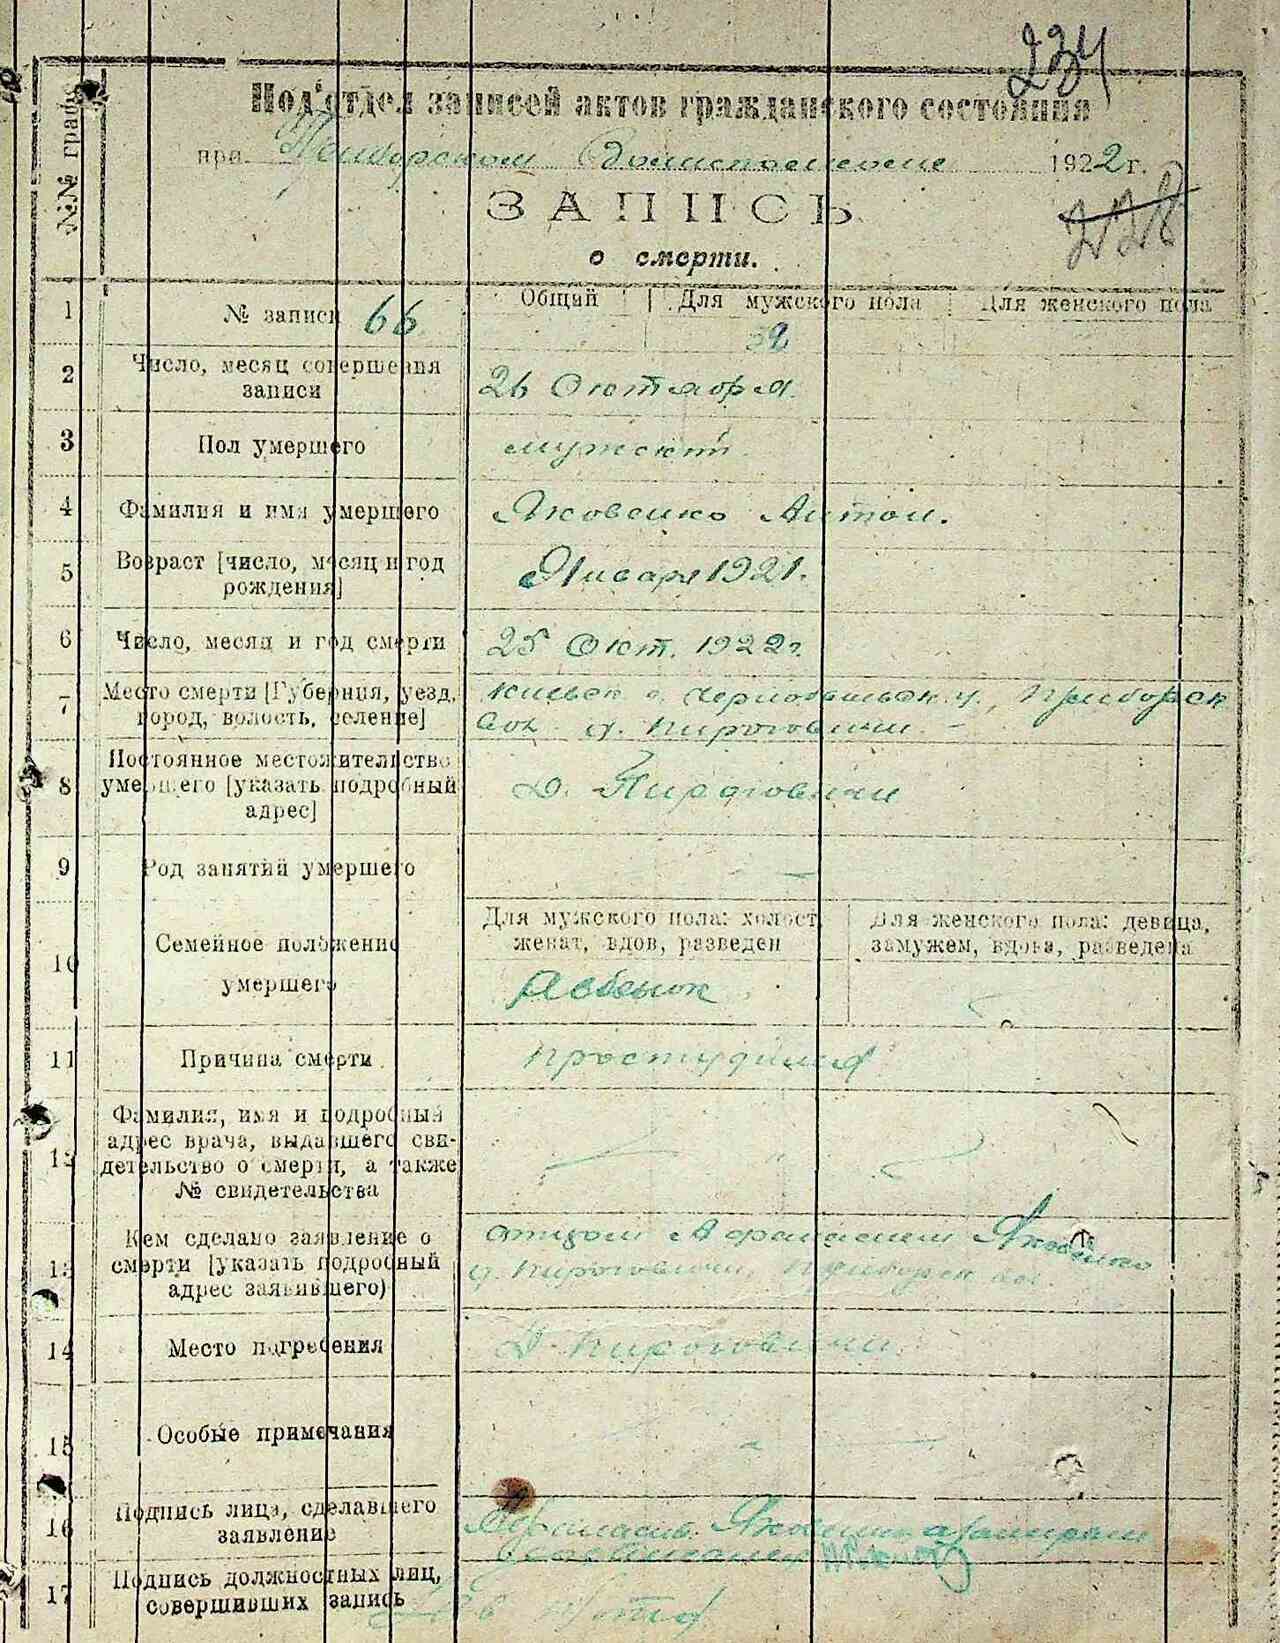 234
Под'отдел записей актов гражданского состояния
при Приборском Волисполкоме 1922 г.
228
ЗАПИСЬ
о смерти.
№№ граф
Общий Для мужского пола Для женского пола
1 № записи 66 32
2 Число, месяц совершения записи
26 Октября
3 Пол умершего
мужской
4 Фамилия и имя умершего
Яковенко Антон.
5 Возраст [число, месяц и год рождения]
Января 1921.
6 Число, месяц и год смерти
25 Окт. 1922 г.
7 Место смерти [Губерния, уезд, город, волость, селение]
Киевск г. Чернобыльск у., Приборск
вол. д. Пироговичи
8 Постоянное местожительство умершего [указать подробный адрес]
Д. Пироговичи
9 Род занятий умершего
10 Семейное положение умершего
Для мужского пола: холост, женат, вдов, разведен
Для женского пола: девица, замужем, вдова, разведена
Ребенок
11 Причина смерти
простудился
12 Фамилия, имя и подробный адрес врача, выдавшего свидетельство о смерти, а также № свидетельства
13 Кем сделано заявление о смерти [указать подробный адрес заявившего)
отцом Афанасием Яковенко
д. Пироговичи, Приборск вол.
14 Место погребения
Д. Пироговичи
15 Особые примечания
16 Подпись лица, сделавшего заявление
Афанасий Яковенко
17 Подпись должностных лиц, совершивших запись